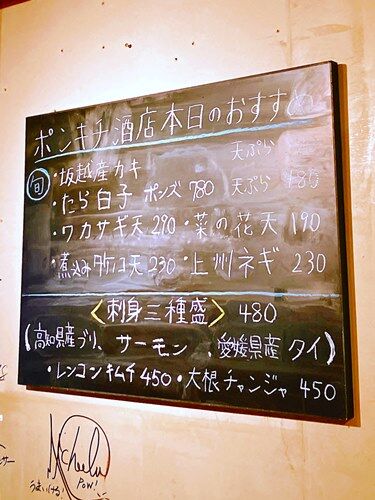 ポンキチ酒店本日のおすすめ
旬
・坂越産カキ 天ぷら
・たら白子 ポンズ 780 天ぷら 180
・ワカサギ天 290 ・菜の花天 190
・煮込みタケノコ天 230 ・上州ネギ 230
〈刺身三種盛〉 480
(高知県産ブリ、サーモン、愛媛県産タイ)
・レンコンキムチ 450 ・大根チャンジャ 450
Pow!
うまいけろ!